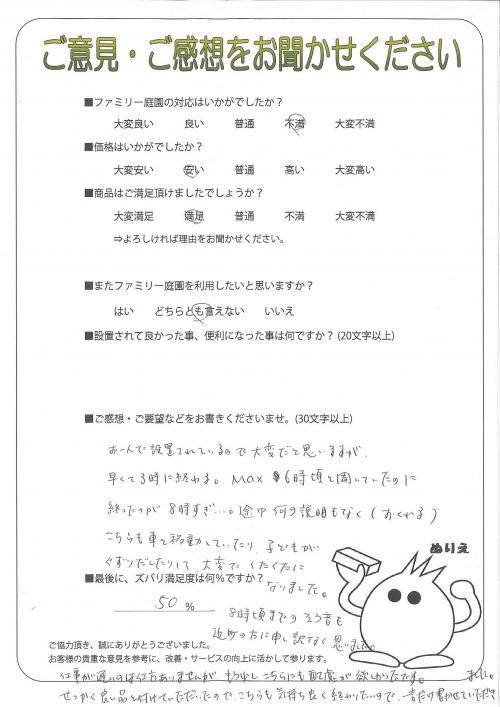 ご意見・ご感想をお聞かせください
■ファミリー庭園の対応はいかがでしたか?
大変良い 良い 普通 不満 大変不満
■価格はいかがでしたか?
大変安い 安い 普通 高い 大変高い
■商品はご満足頂けましたでしょうか?
大変満足 満足 普通 不満 大変不満
⇒よろしければ理由をお聞かせください。
■またファミリー庭園を利用したいと思いますか?
はい どちらとも言えない いいえ
■設置されて良かった事、便利になった事は何ですか? (20文字以上)
■ご感想・ご要望などをお書きくださいませ。(30文字以上)
お一人で設置されているので大変だと思いますが、
早くて3時に終わる。MAX 6時頃と聞いていたのに
終ったのが8時すぎ…。途中何の説明もなく(おくれる)
こちらも車を移動していたり、子どもが
ぐずりだしたりして、大変でくたくたに
なりました。
ぬりえ
■最後に、ズバリ満足度は何%ですか?
50 %
8時頃までの そう音も
近所の方に申し訳なく思いました。
ご協力頂き、誠にありがとうございました。
お客様の貴重な意見を参考に、改善・サービスの向上に活かして参ります。
仕事が遅いのは仕方ありませんが もう少しこちらにも配慮が欲しかったです。
せっかく良い品を付けていただいたので、こちらも気持ち良く終わりたいので、一言だけ書かせていただき
ました。